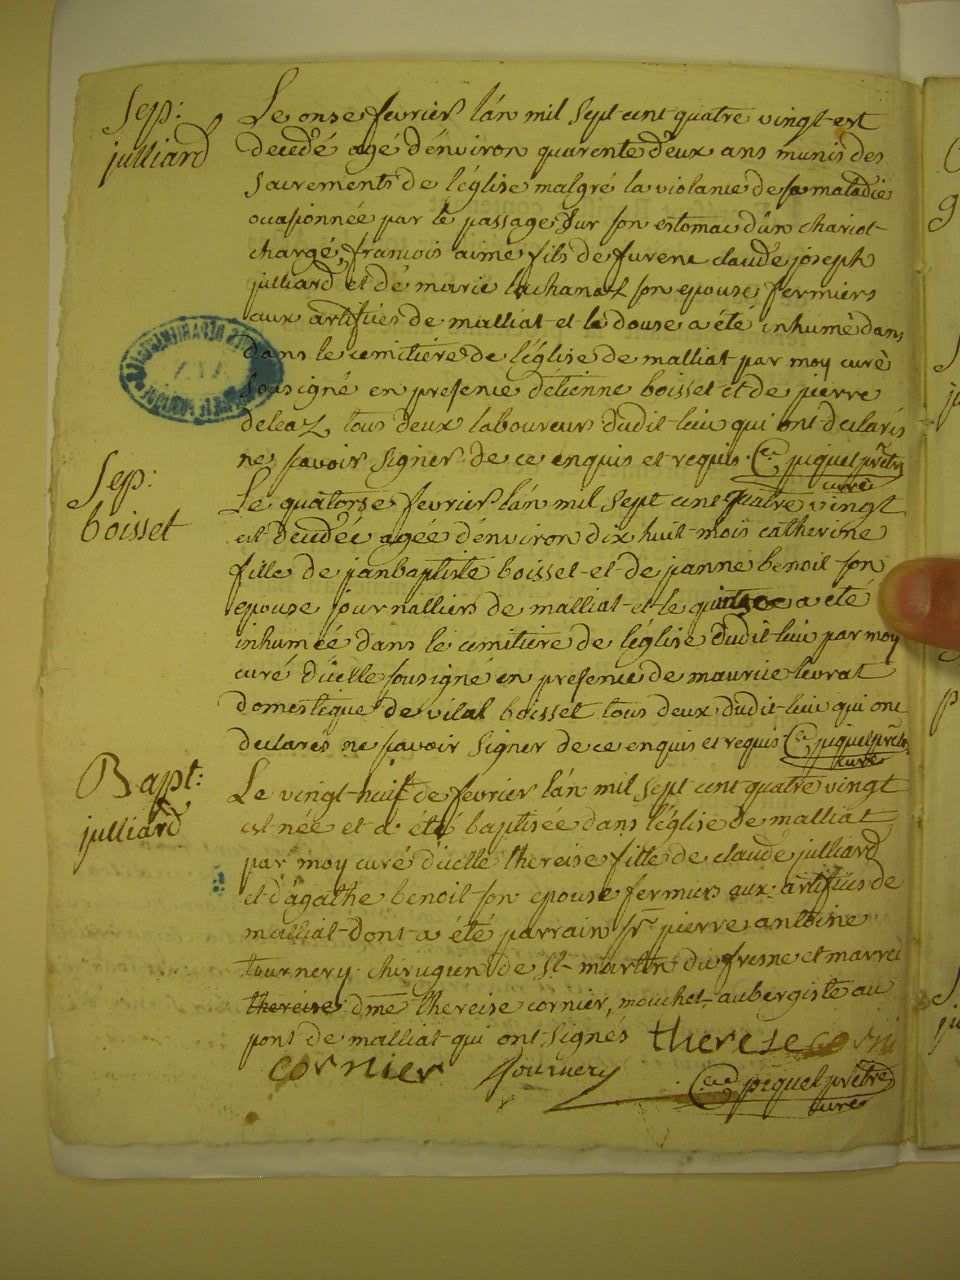 Sep:
julliard
Le onse fevrier lán mil sept cent quatre vingt est
decedé agé dénviron quarente deux ans munis des
sacrements de léglise malgré la violance de sa maladie
ocasionnée par le passage sur son estomac dún chariot
chargé, francois aimé fils de furent claude joseph
julliard et de marie lachanal son epouse fermiers
aux artifices de malliat et la douse a été inhumé dans
dans le cemitière de léglise de malliat par moy curé
sousigné en presence détienne boisset et de pierre
deleaz tous deux laboureurs dudit lieu qui ont declarés
ne savoir signer de ce enquis et requis piquet prêtre
curé
Sep:
boisset
Le quatorse fevrier lán mil sept cent quatre vingt
est decedée agée dénviron dix huit mois catherine
fille de janbaptiste boisset et de janne benoit son
epouse journalliers de malliat et le quinse a été
inhumée dans le cemitière de léglise dudit lieu par moy
curé dicelle sousigné en presence de maurice levrat
domestique de vital boisset tous deux dudit lieu qui ont
declarés ne savoir signer de ce enquis et requis piquet prêtre
curé
Bapt:
julliard
Le vingt-huit de fevrier lán mil sept cent quatre vingt
est née et a été baptisée dans léglise de malliat
par moy curé dicelle thereise fille de claude julliard
et dágathe benoit son epouse fermiers aux artifices de
malliat dont a été parrain sr pierre antoine
tournery chirugien de st martin du fresne et marrei
thereise dme thereise cornier, mouchet aubergiste au
pont de malliat qui ont signés therese corni
cornier tournery
piquet prêtre
curé